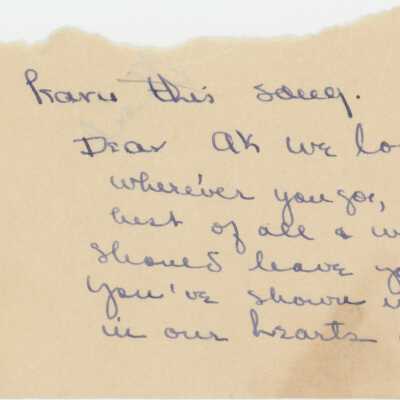 learn this song.
Dear AK we lo
wherever you go,
best of all & w
should leave yo
you've shown u
in our hearts